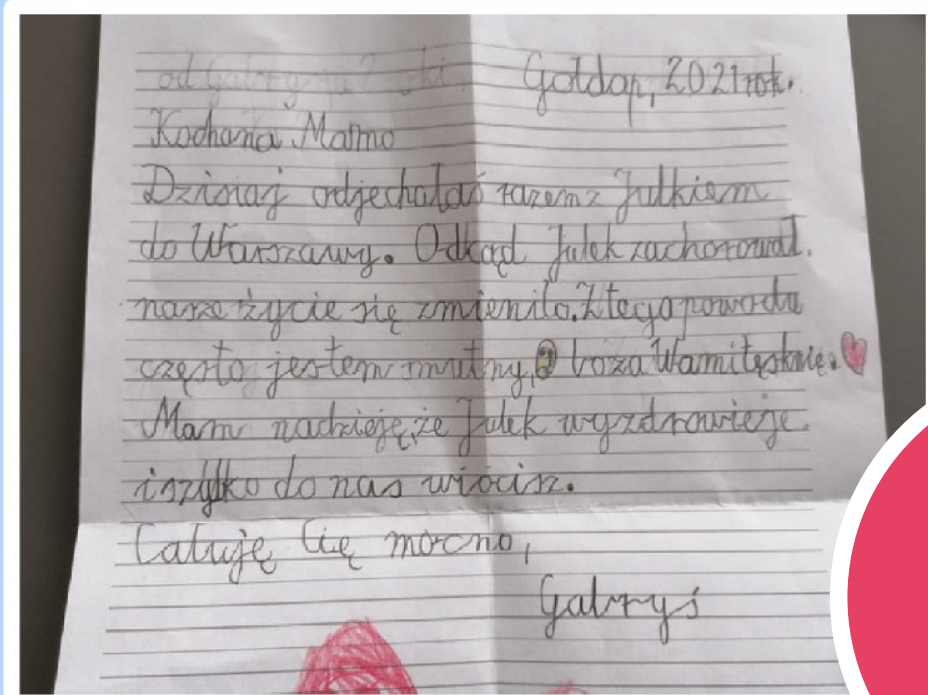 Gołdap, 2021 rok.
Kochana Mamo
Dzisiaj odjechałaś razem z Julkiem
do Warszawy. Odkąd Julek zachorował.
nasze życie się zmieniło. Z tego powodu
często jestem smutny, bo za Wami tęsknię.
Mam nadzieję, że Julek wyzdrowieje
i szybko do nas wrócisz.
Całuję Cię mocno,
Gabryś